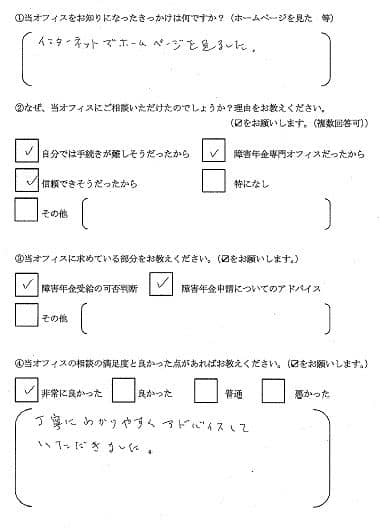 ①当オフィスをお知りになったきっかけは何ですか？（ホームページを見た　等）
インターネットでホームページを見ました。
②なぜ、当オフィスにご相談いただけたのでしょうか？理由をお教えください。
（☑をお願いします。（複数回答可））
自分では手続きが難しそうだったから　障害年金専門オフィスだったから
信頼できそうだったから　特になし
その他
③当オフィスに求めている部分をお教えください。（☑をお願いします。）
障害年金受給の可否判断　障害年金申請についてのアドバイス
その他
④当オフィスの相談の満足度と良かった点があればお教えください。（☑をお願いします。）
非常に良かった　良かった　普通　悪かった
丁寧にわかりやすくアドバイスして
いただきました。